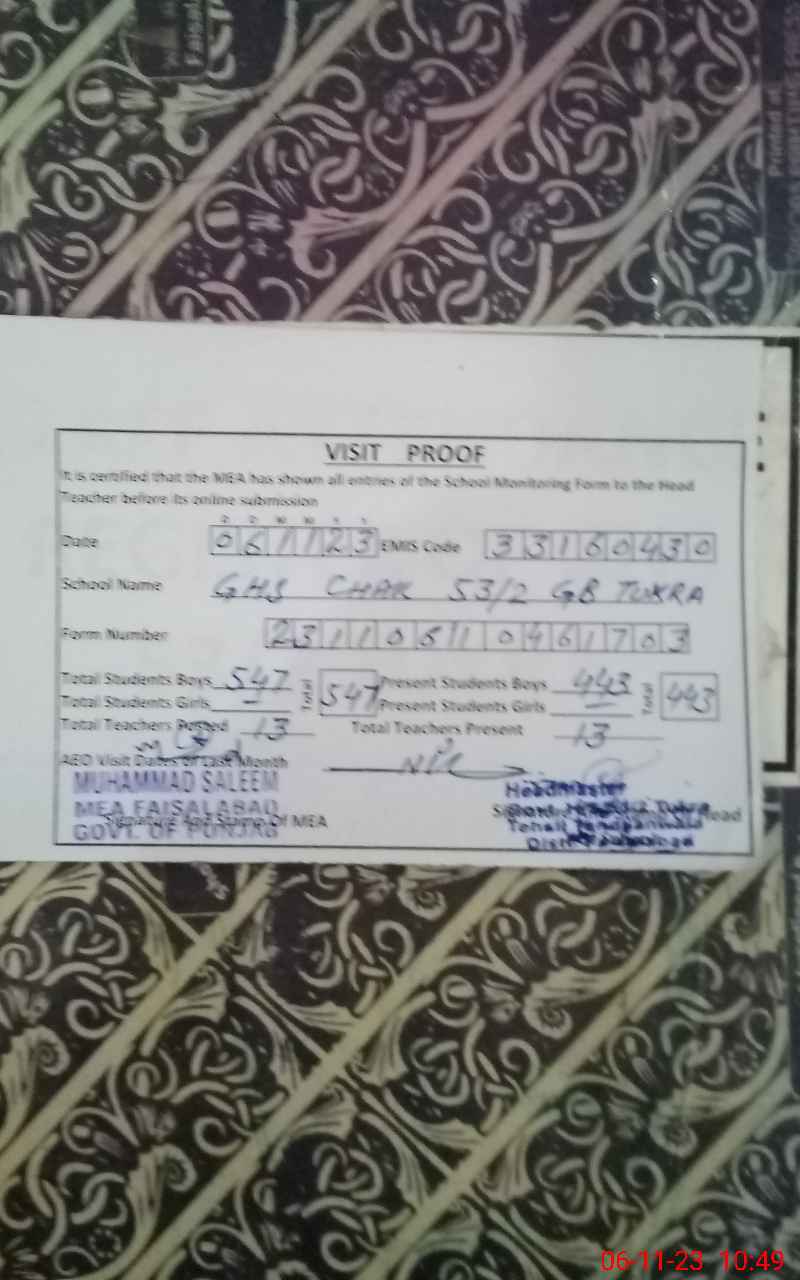 Faisal
Printed at:
VISIT PROOF
It is certified that the MEA has shown all entries of the School Monitoring Form to the Head
Teacher before its online submission
D D M M Y Y
Date 061123 EMIS Code 33160430
School Name GHS CHAK 53/2 GB TUKRA
Form Number
Total Students Boys 547 547 Present Students Boys 443 443
Total Students Girls - Present Students Girls -
Total Teachers Posted 13 Total Teachers Present 13
AEO Visit Dates of Last Month Nil
MUHAMMAD SALEEM
MEA FAISALABAD
GOVT. OF PUNJAB
Signature And Stamp Of MEA
Headmaster
Head
06-11-23 10:49